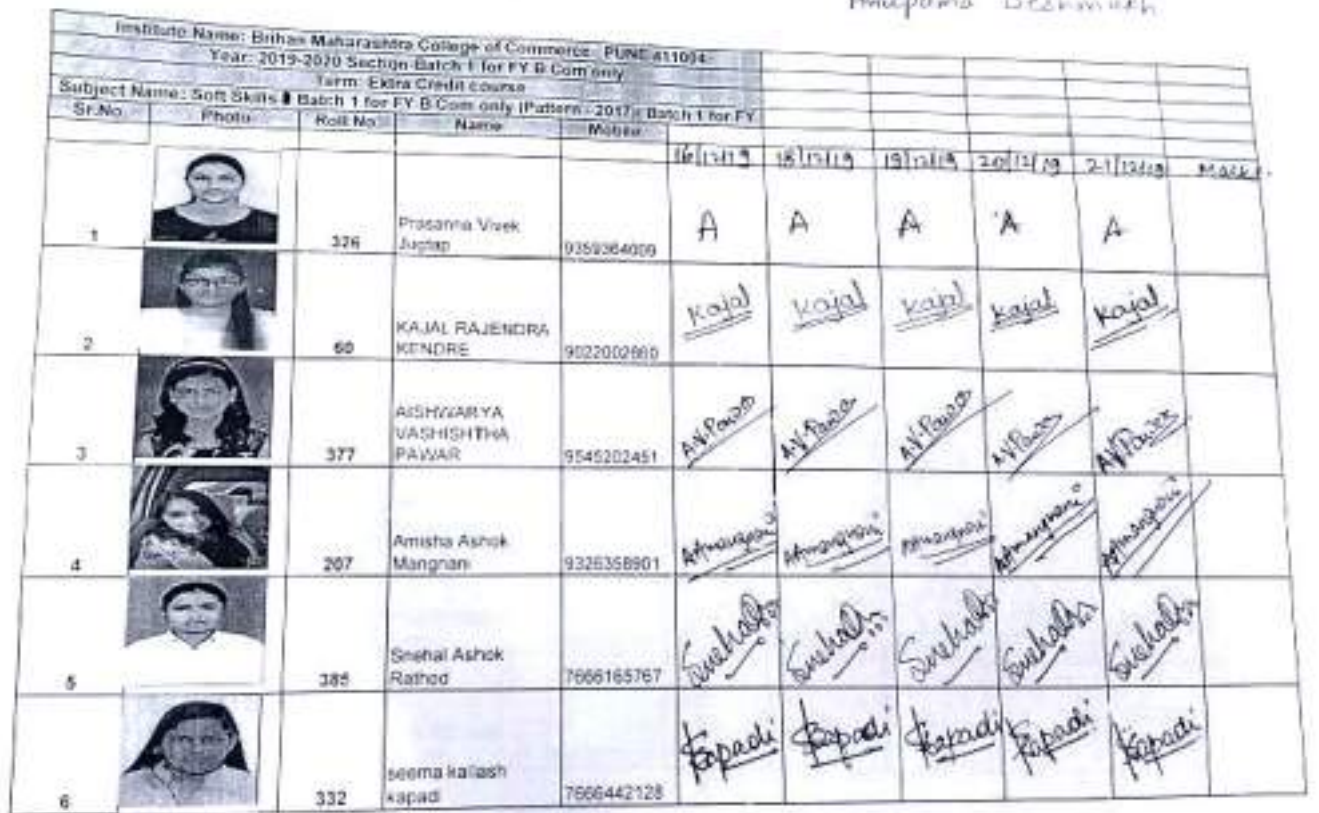 Anupama Deshmukh
Institute Name: Brihan Maharashtra College of Commerce, PUNE 411004
Year: 2019-2020 Section-Batch 1 for FY B Com only
Term: Extra Credit course
Subject Name: Soft Skills Batch 1 for FY B Com only (Pattern - 2017) Batch 1 for FY
Sr.No Photo Roll No Name Mobile
16/12/19 18/12/19 19/12/19 20/12/19 21/12/19 Marks
Prasanna Vivek
1 326 Jugtap 9359364009 A A A A A
KAJAL RAJENDRA
2 60 KENDRE 9022002660 Kajal Kajal Kajal Kajal Kajal
AISHWARYA
VASHISHTHA
3 377 PAWAR 9545202451 A.V.Pawar A.V.Pawar A.V.Pawar A.V.Pawar A.V.Pawar
Amisha Ashok
4 207 Mangnani 9326358901 AAmangnani AAmangnani AAmangnani AAmangnani AAmangnani
Snehal Ashok
5 385 Rathod 7666165767 Snehal Snehal Snehal Snehal Snehal
seema kailash
6 332 kapadi 7666442128 Kapadi Kapadi Kapadi Kapadi Kapadi